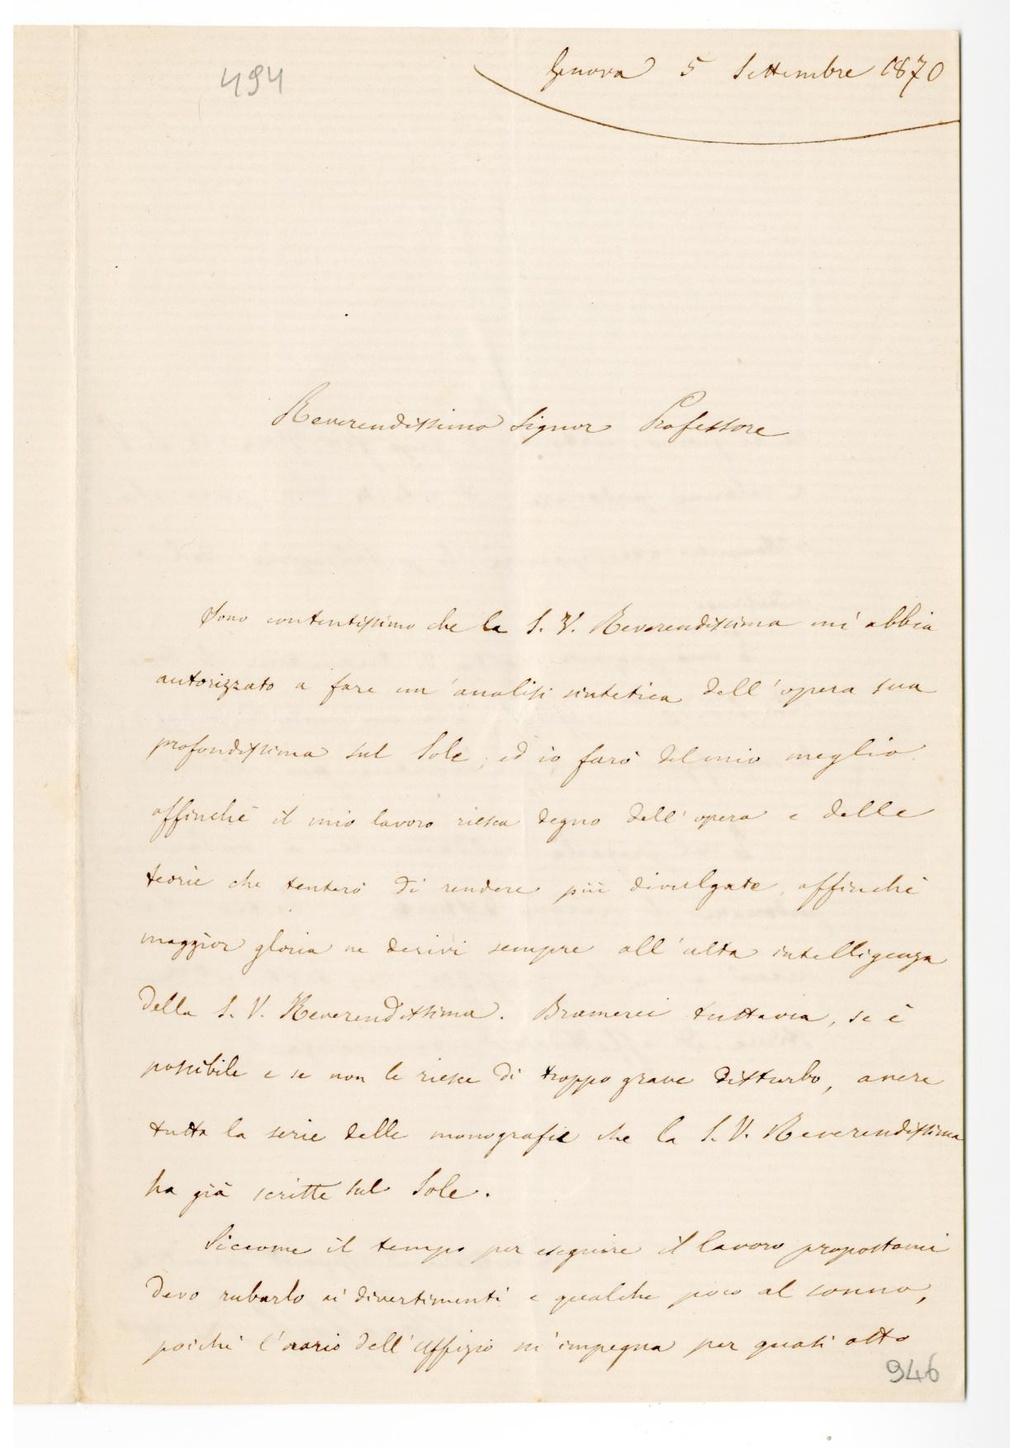 494
Genova 5 Settembre 1870
Reverendissimo Signor Professore
Sono contentissimo che la S. V. Reverendissima mi abbia
autorizzato a fare un'analisi sintetica dell'opera sua
profondissima sul Sole, ed io farò del mio meglio
affinchè il mio lavoro riesca degno dell'opera e delle
teorie che tenterò di rendere più divulgate, affinchè
maggior gloria ne derivi sempre all'alta intelligenza
della S. V. Reverendissima. Bramerei tuttavia, se è
possibile e se non le riesce di troppo grave disturbo, avere
tutta la serie delle monografie che la S. V. Reverendissima
ha già scritte sul Sole.
Siccome il tempo per eseguire il lavoro propostomi
devo rubarlo ai divertimenti e qualche poco al sonno,
poichè l'orario dell'Uffizio m'impegna per quasi otto
946